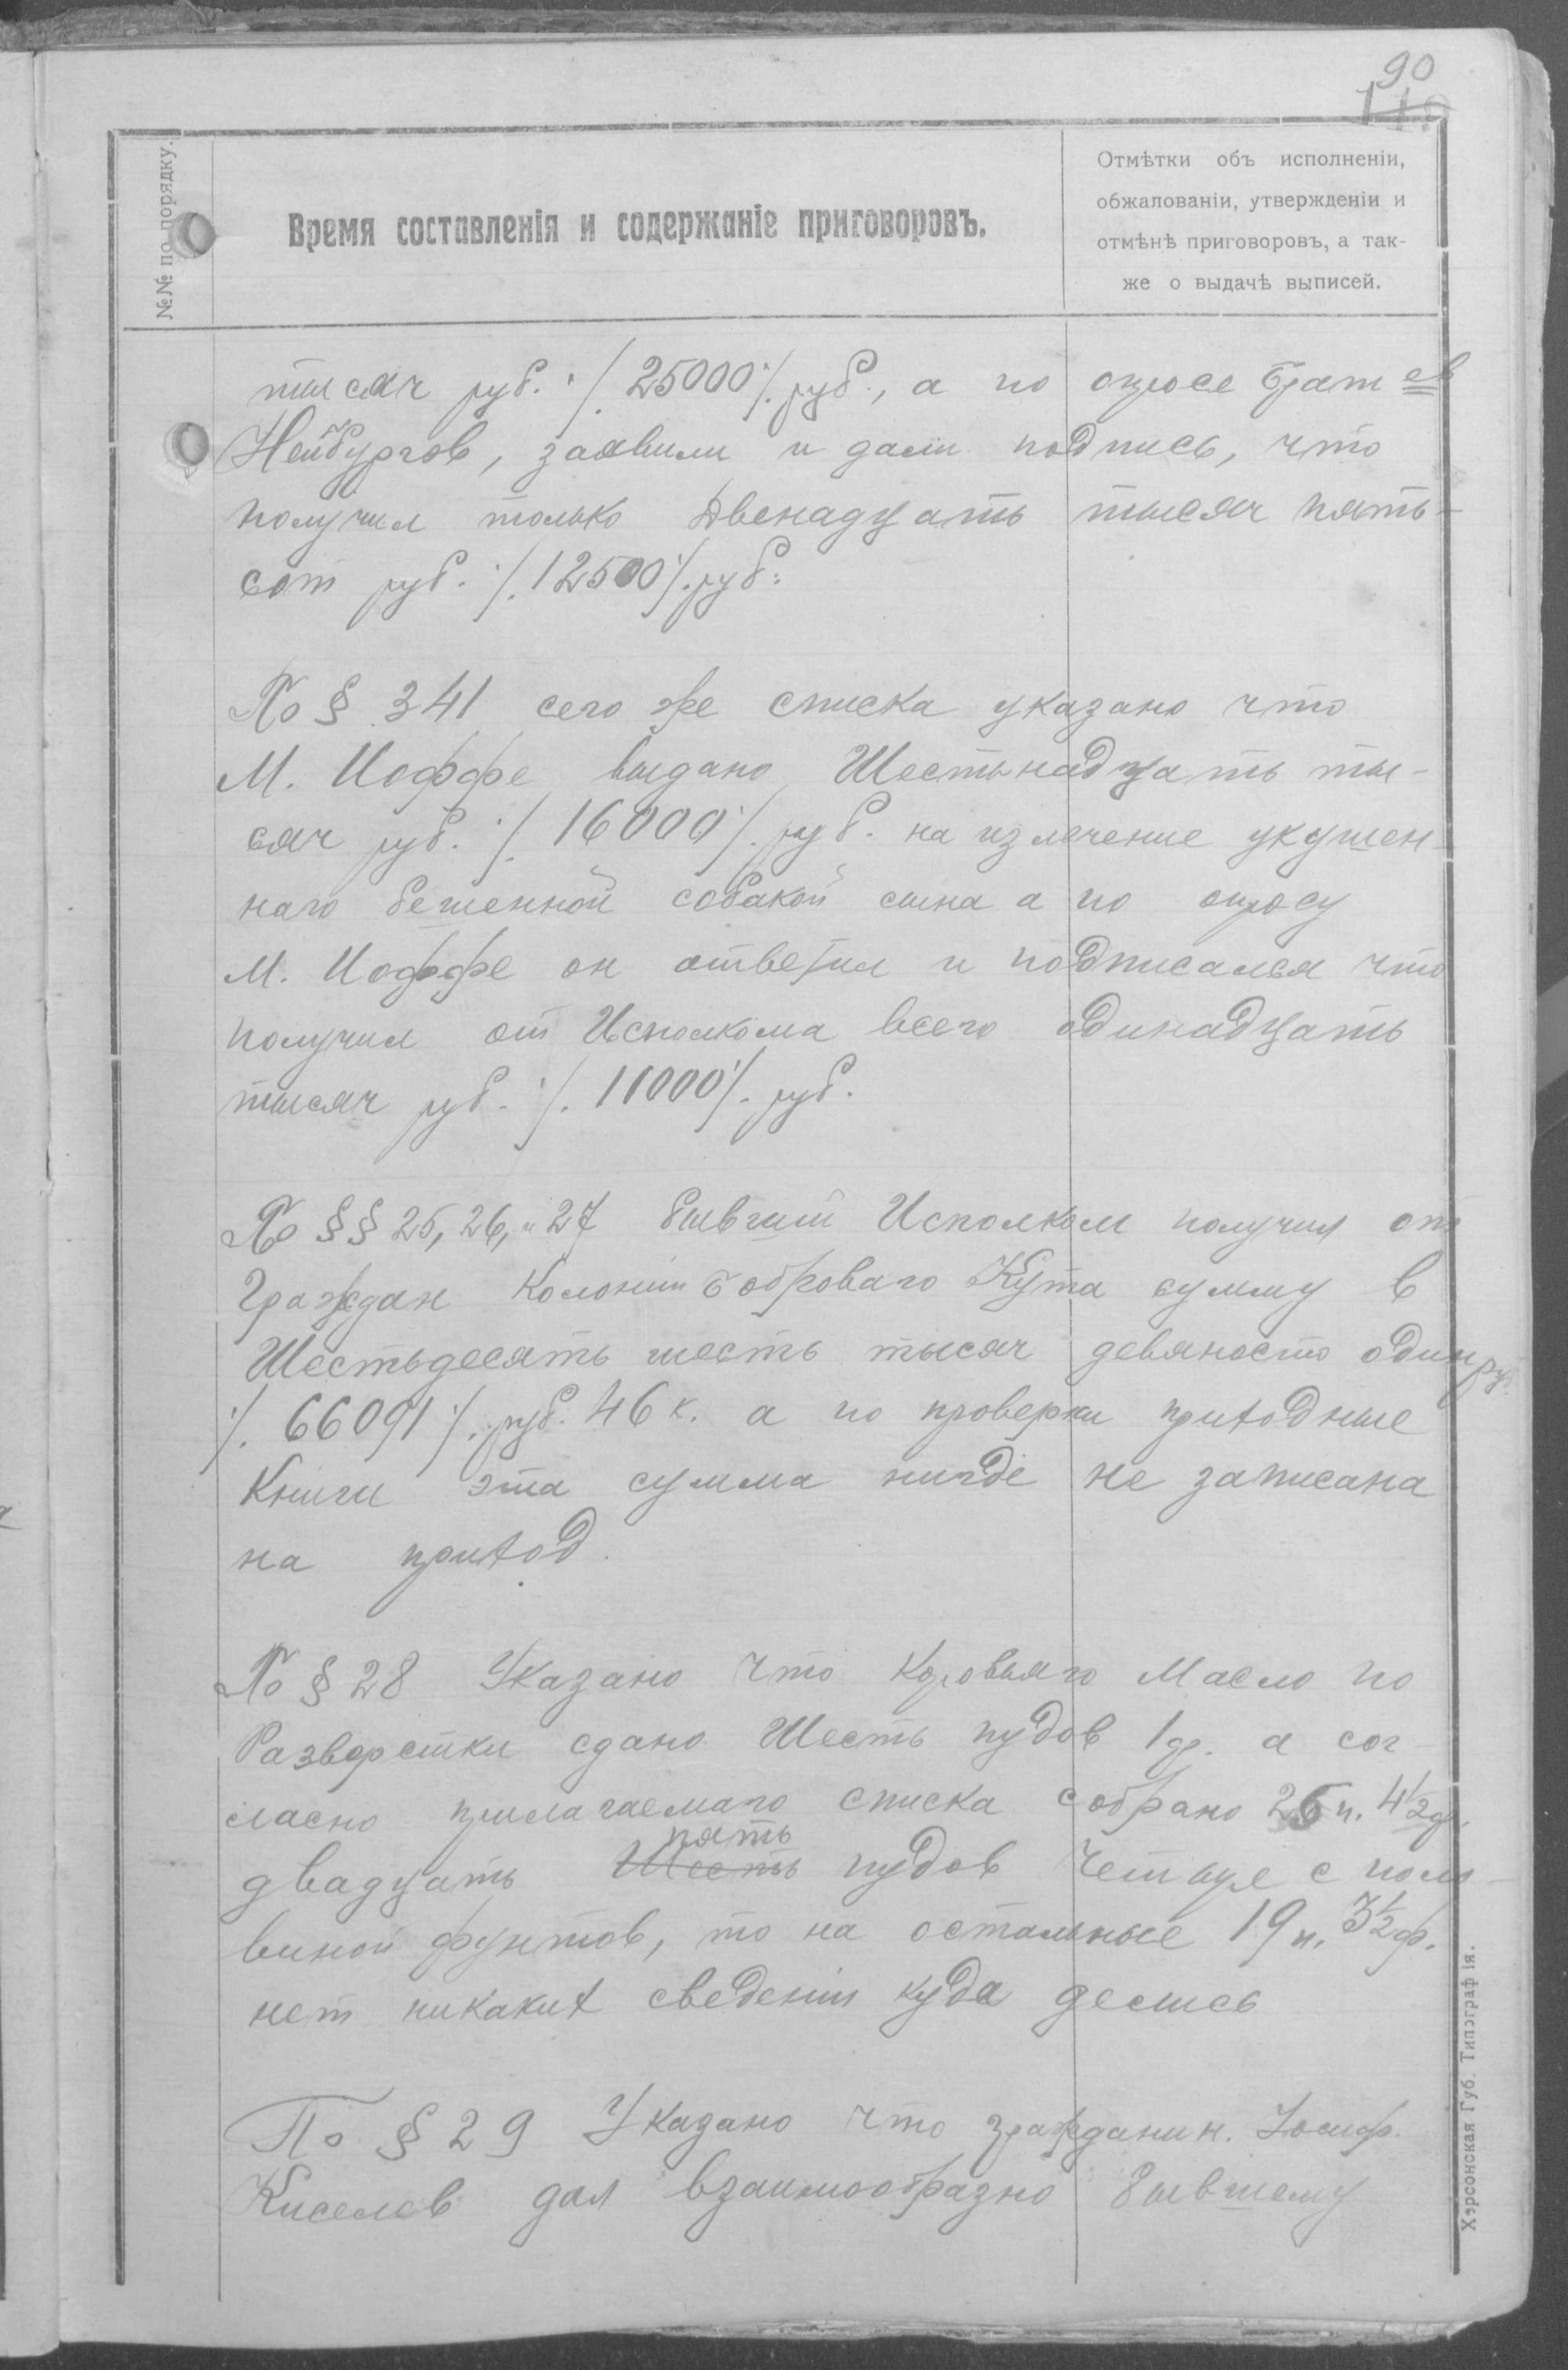 90
№№ по порядку.
Время составленія и содержаніе приговоровъ.
Отмѣтки объ исполненіи,
обжалованіи, утвержденіи и
отмѣнѣ приговоровъ, а так-
же о выдачѣ выписей.
тысяч руб. ·/. 25000 ·/. руб., а по опросе братьев
Нейбургов, заявили и дали подпись, что
получил только двенадцать тысяч пять-
сот руб. ·/. 12500 ·/. руб:
По § 341 сего же списка указано что
М. Иоффе выдано Шестьнадцать ты-
сяч руб. ·/. 16000 ·/. руб. на излечение укушен-
наго бешенной собакой сына а по опросу
М. Иоффе он ответил и подписался что
получил от Исполкома всего одинадцать
тысяч руб. ·/. 11000 ·/. руб.
По §§ 25, 26, и 27 бывший Исполком получил от
Граждан Колонии Боброваго Кута сумму в
Шестьдесять шесть тысяч девяносто один ру.
·/. 66091 ·/. руб. 46 к. а по проверки приходные
Книги эта сумма нигде не записана
на приход.
По § 28 Указано что коровьяго Масло по
Разверстки сдано Шесть пудов 1 ф. а сог-
ласно прилагаемаго списка собрано 25 п. 4½ ф.
двадцать Шесть пять пудов четыре с поло-
виной фунтов, то на остальные 19 п. 3½ ф.
нет никаких сведении куда делись
По § 29 Указано что гражданин. Иосиф.
Киселев дал взаимообразно бывшему
Херсонская Губ. Типографія.